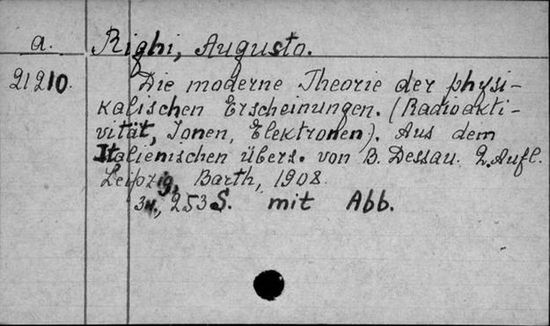 a. Righi, Augusto.
21210. Die moderne Theorie der physi-
kalischen Erscheinungen. (Radioakti-
vität, Ionen, Elektronen). Aus dem
Italienischen übers. von B. Dessau. 2. Aufl.
Leipzig, Barth, 1908.
253 S. mit Abb.